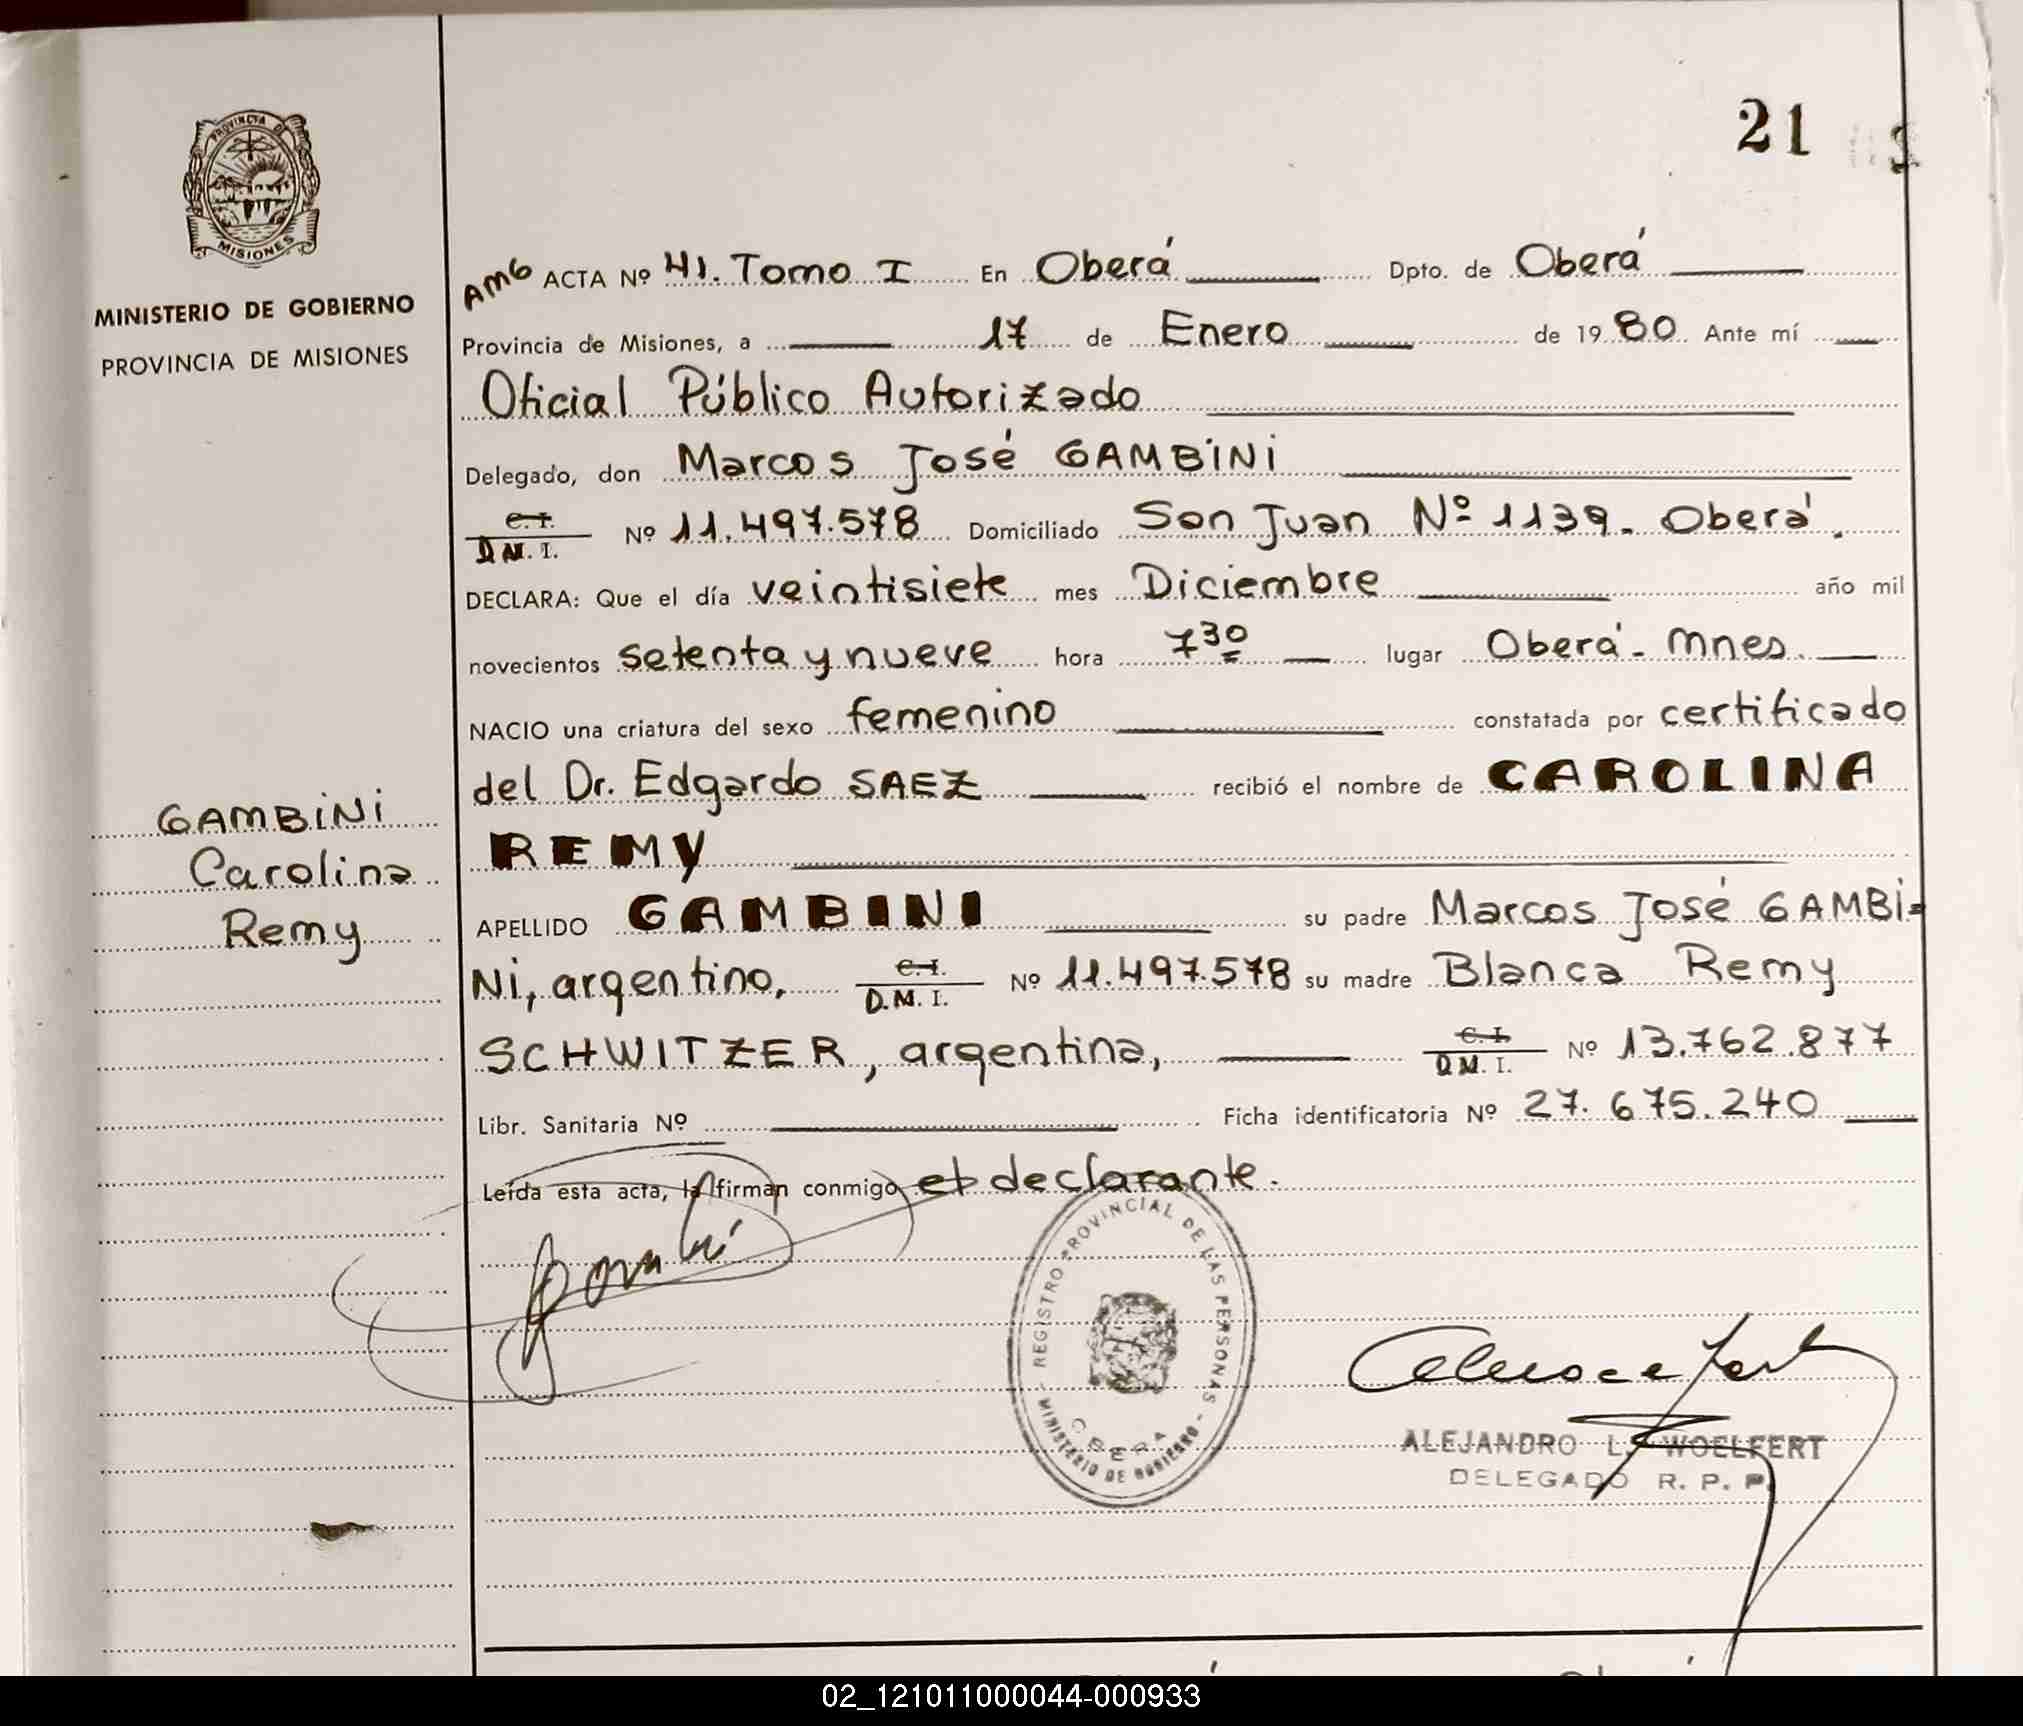 21
PROVINCIA DE
MISIONES
MINISTERIO DE GOBIERNO
PROVINCIA DE MISIONES
AMG ACTA Nº 41. Tomo I En Oberá Dpto. de Oberá
Provincia de Misiones, a 17 de Enero de 1980. Ante mí
Oficial Público Autorizado
Delegado, don Marcos José GAMBINI
C. I.
D. M. I. Nº 11.497.578 Domiciliado San Juan Nº 1139. Oberá.
DECLARA: Que el día veintisiete mes Diciembre año mil
novecientos setenta y nueve hora 7 30 lugar Oberá - Mnes.
NACIO una criatura del sexo femenino constatada por certificado
del Dr. Edgardo SAEZ recibió el nombre de CAROLINA
REMY
GAMBINI
Carolina
Remy
APELLIDO GAMBINI su padre Marcos José GAMBI-
NI, argentino, C. I.
D. M. I. Nº 11.497.578 su madre Blanca Remy
SCHWITZER, argentina, C. I.
D. M. I. Nº 13.762.877
Libr. Sanitaria Nº Ficha identificatoria Nº 27.675.240
Leída esta acta, la firman conmigo el declarante.
REGISTRO PROVINCIAL DE LAS PERSONAS - MINISTERIO DE GOBIERNO -
OBERA
ALEJANDRO L. WOELFERT
DELEGADO R. P. P.
02_121011000044-000933